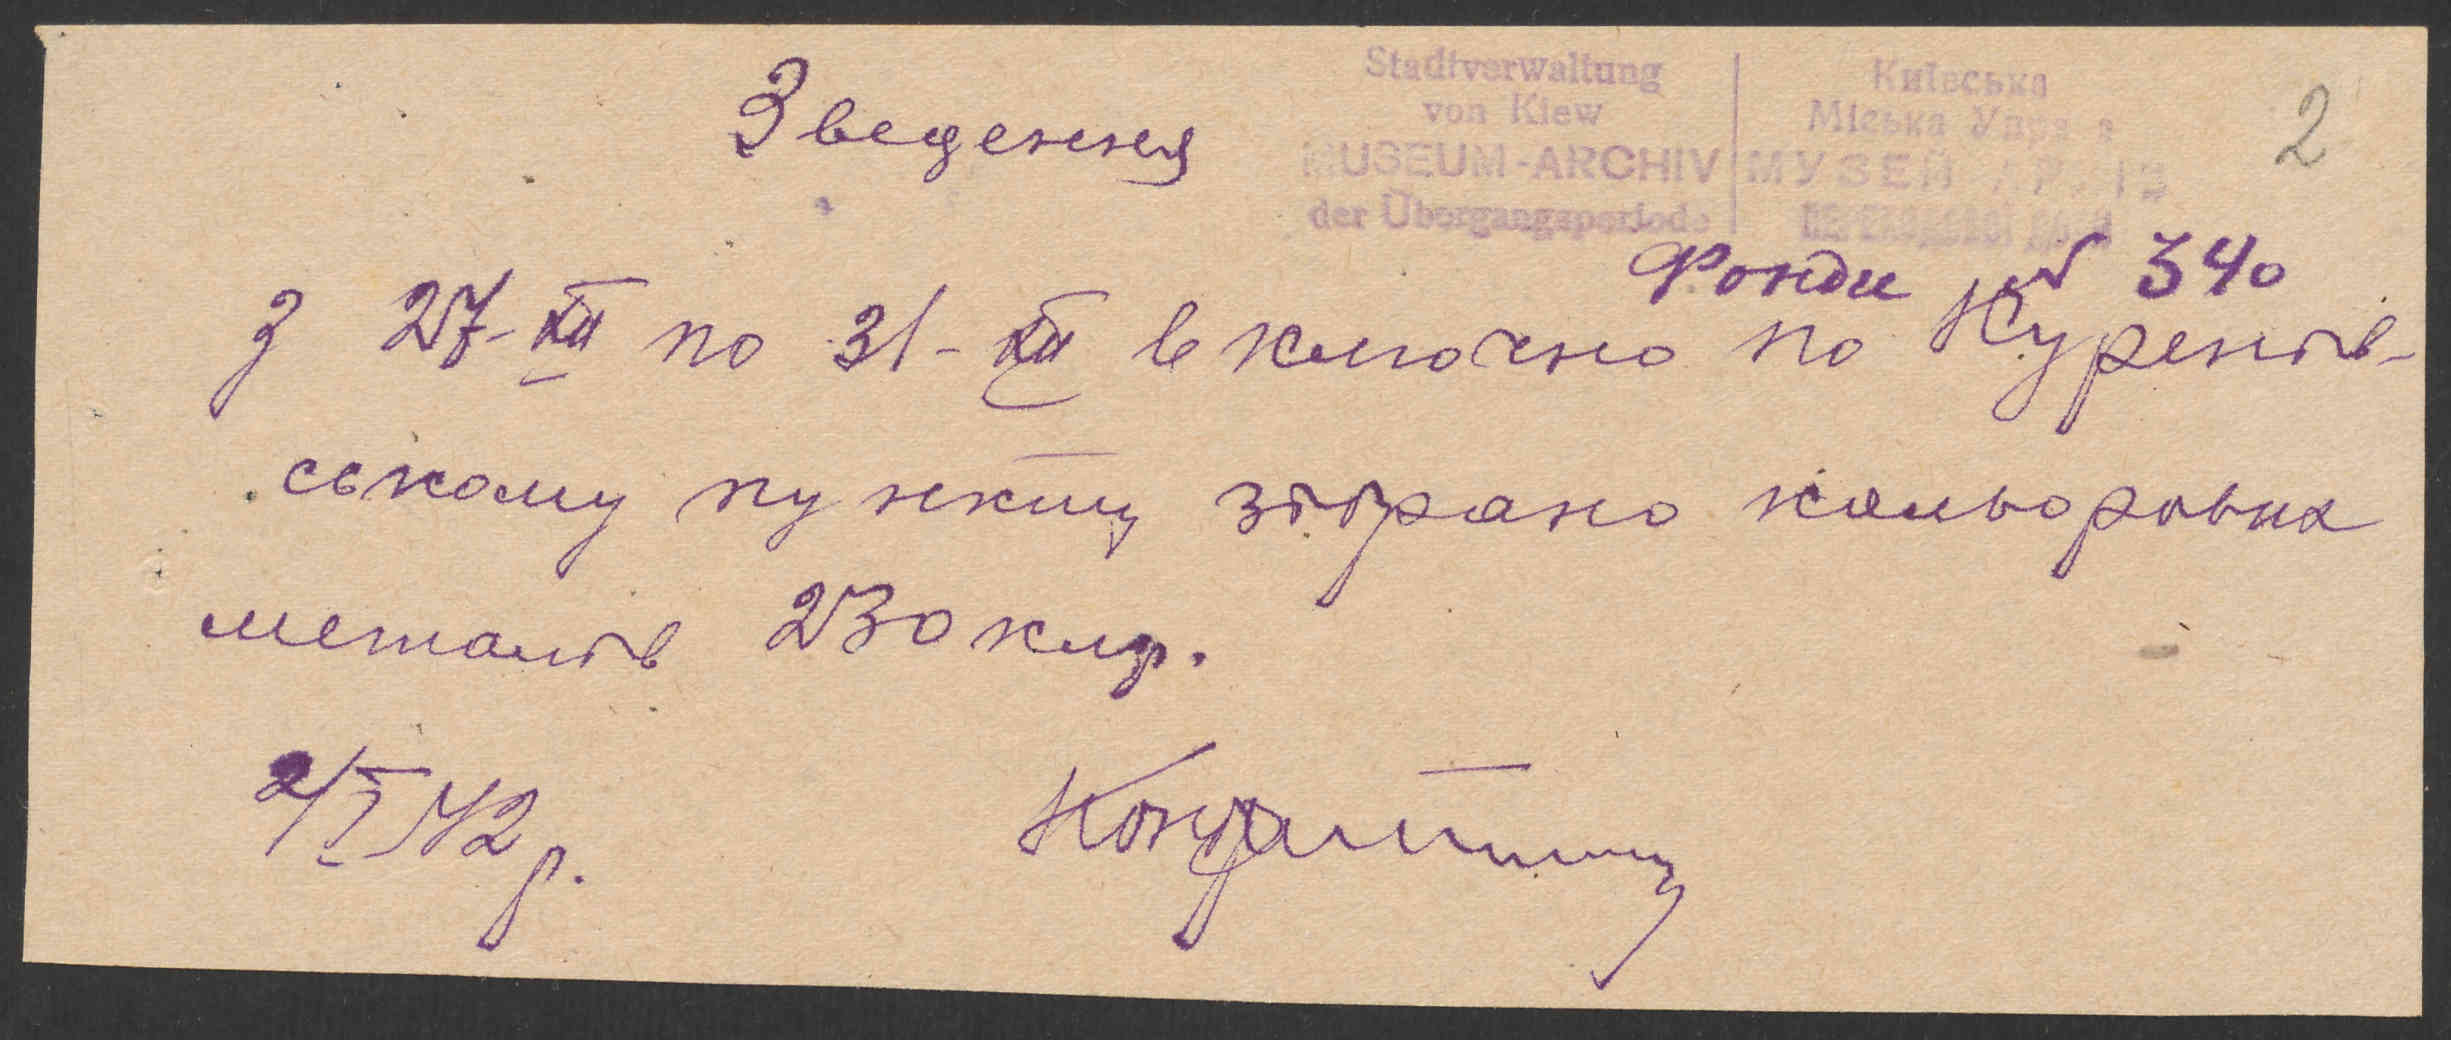 Stadtverwaltung
von Kiew
MUSEUM-ARCHIV
der Übergangsperiode
Київська
Міська Управа
МУЗЕЙ АРХІВ
переходової доби
2
Зведення
Фонди № 340
З 27-XII по 31-XII включно по Куренів-
ському пункту зібрано кольорових
металів 230 клгр.
2/I 42 р.